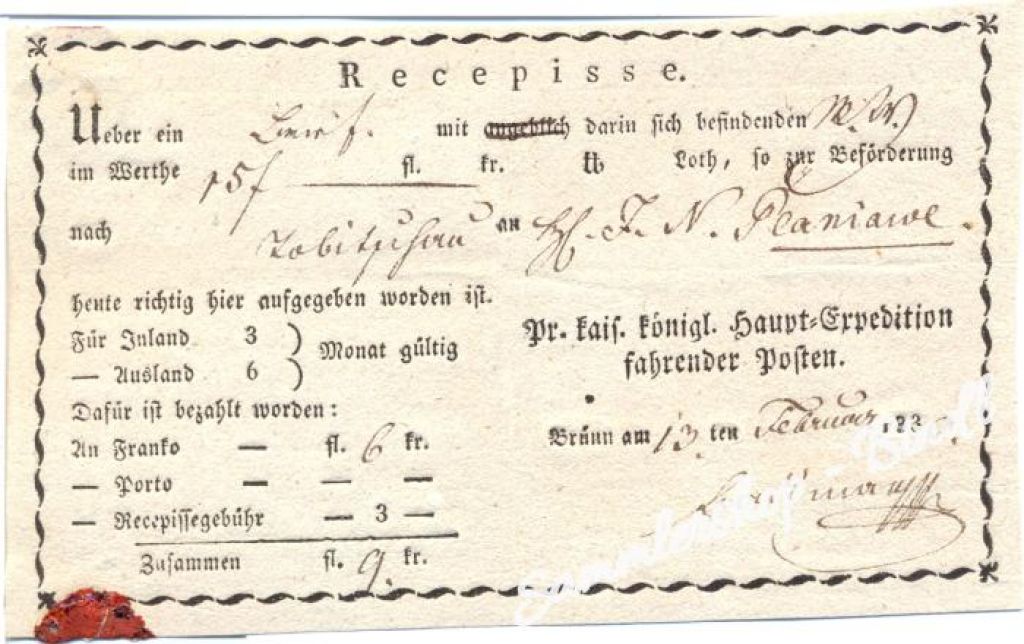 Recepisse.
Ueber ein Brief. mit angeblich darin sich befindenden W.W.
im Werthe 15f fl. kr. ℔ Loth, so zur Beförderung
nach Tobitschau an H. J. N. Planiawe.
heute richtig hier aufgegeben worden ist.
Für Inland 3 ) Monat gültig
— Ausland 6 )
Pr. kais. königl. Haupt-Expedition
fahrender Posten.
Dafür ist bezahlt worden:
An Franko — fl. 6 kr.
— Porto — — —
— Recepissegebühr — 3 —
Zusammen fl. 9. kr.
Brünn am 13 ten Februar